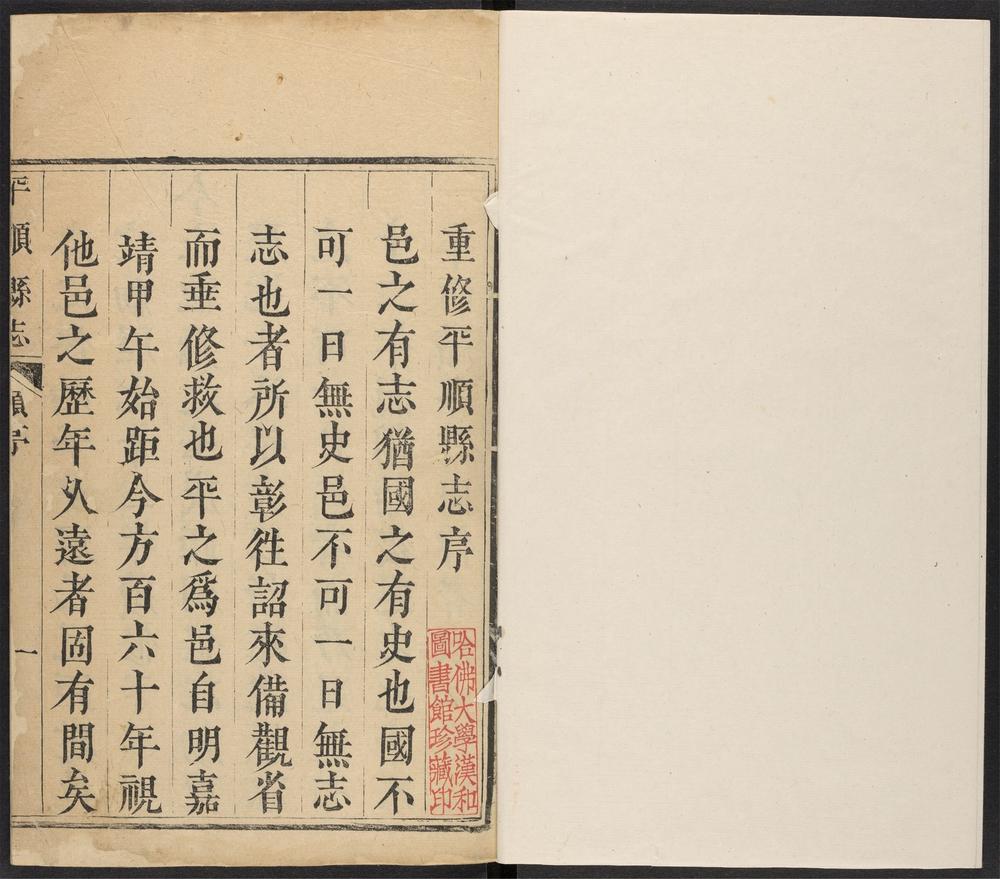 重修平順縣志序
邑之有志猶國之有史也國不
可一日無史邑不可一日無志
志也者所以彰徃詔來備觀省
而垂修救也平之爲邑自明嘉
靖甲午始距今方百六十年視
他邑之歷年久遠者固有間矣
平順縣志
序
一
哈佛大學漢和
圖書館珍藏印